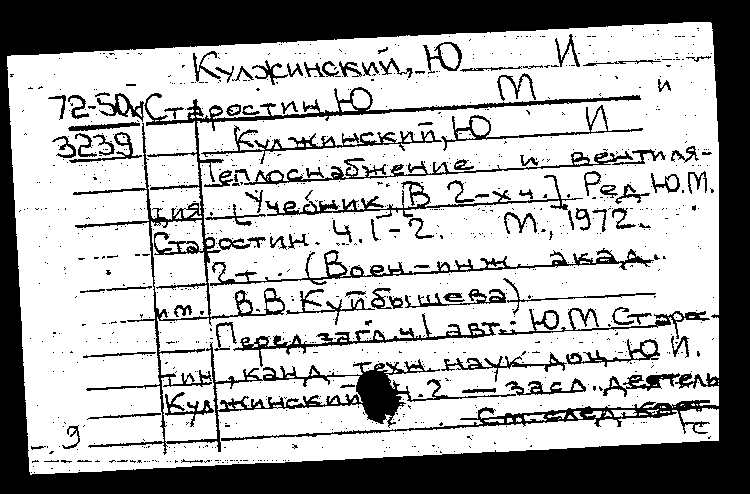 Кулжинский, Ю И
72-50к Старостин, Ю М и
3239 Кулжинский, Ю И
Теплоснабжение и вентиля-
ция. [Учебник. [В 2-х ч.]. Ред. Ю.М.
Старостин. Ч. 1-2. М., 1972.
2т.. (Воен.-инж. акад.
им. В.В. Куйбышева).
Перед загл. ч.1 авт.: Ю.М. Старос-
тин, канд. техн. наук доц. Ю.И.
Кулжинский ч.2 — засл. деятель
См. след. карт
9 с